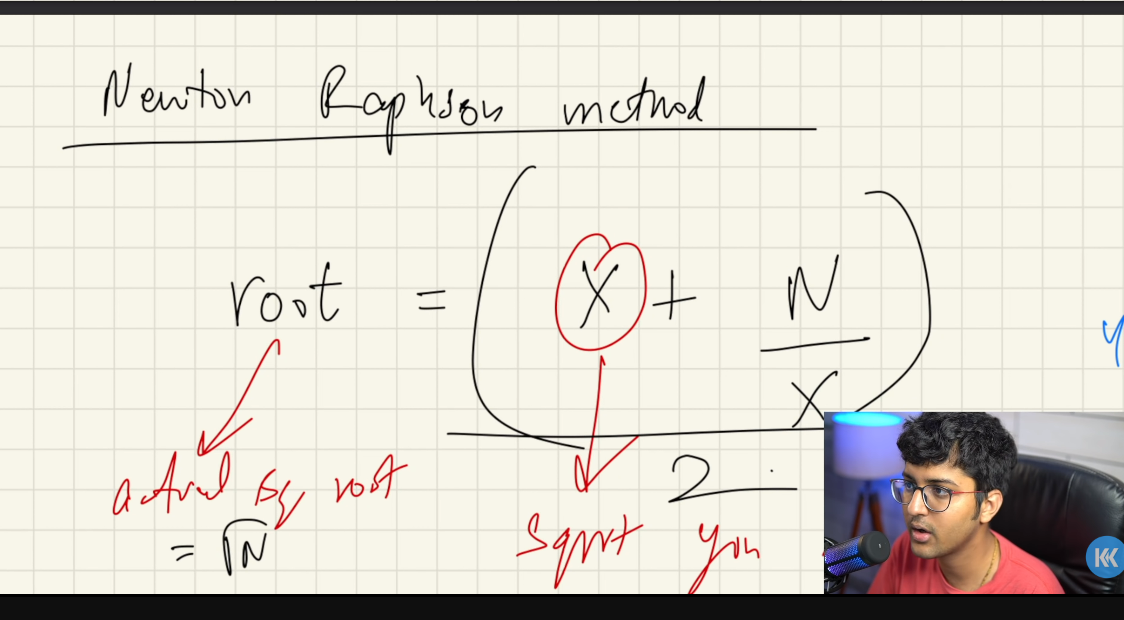 Newton Raphson method
root = ( X + N
X )
2
actual sq root
= √N
Sqrt you
Y
KK